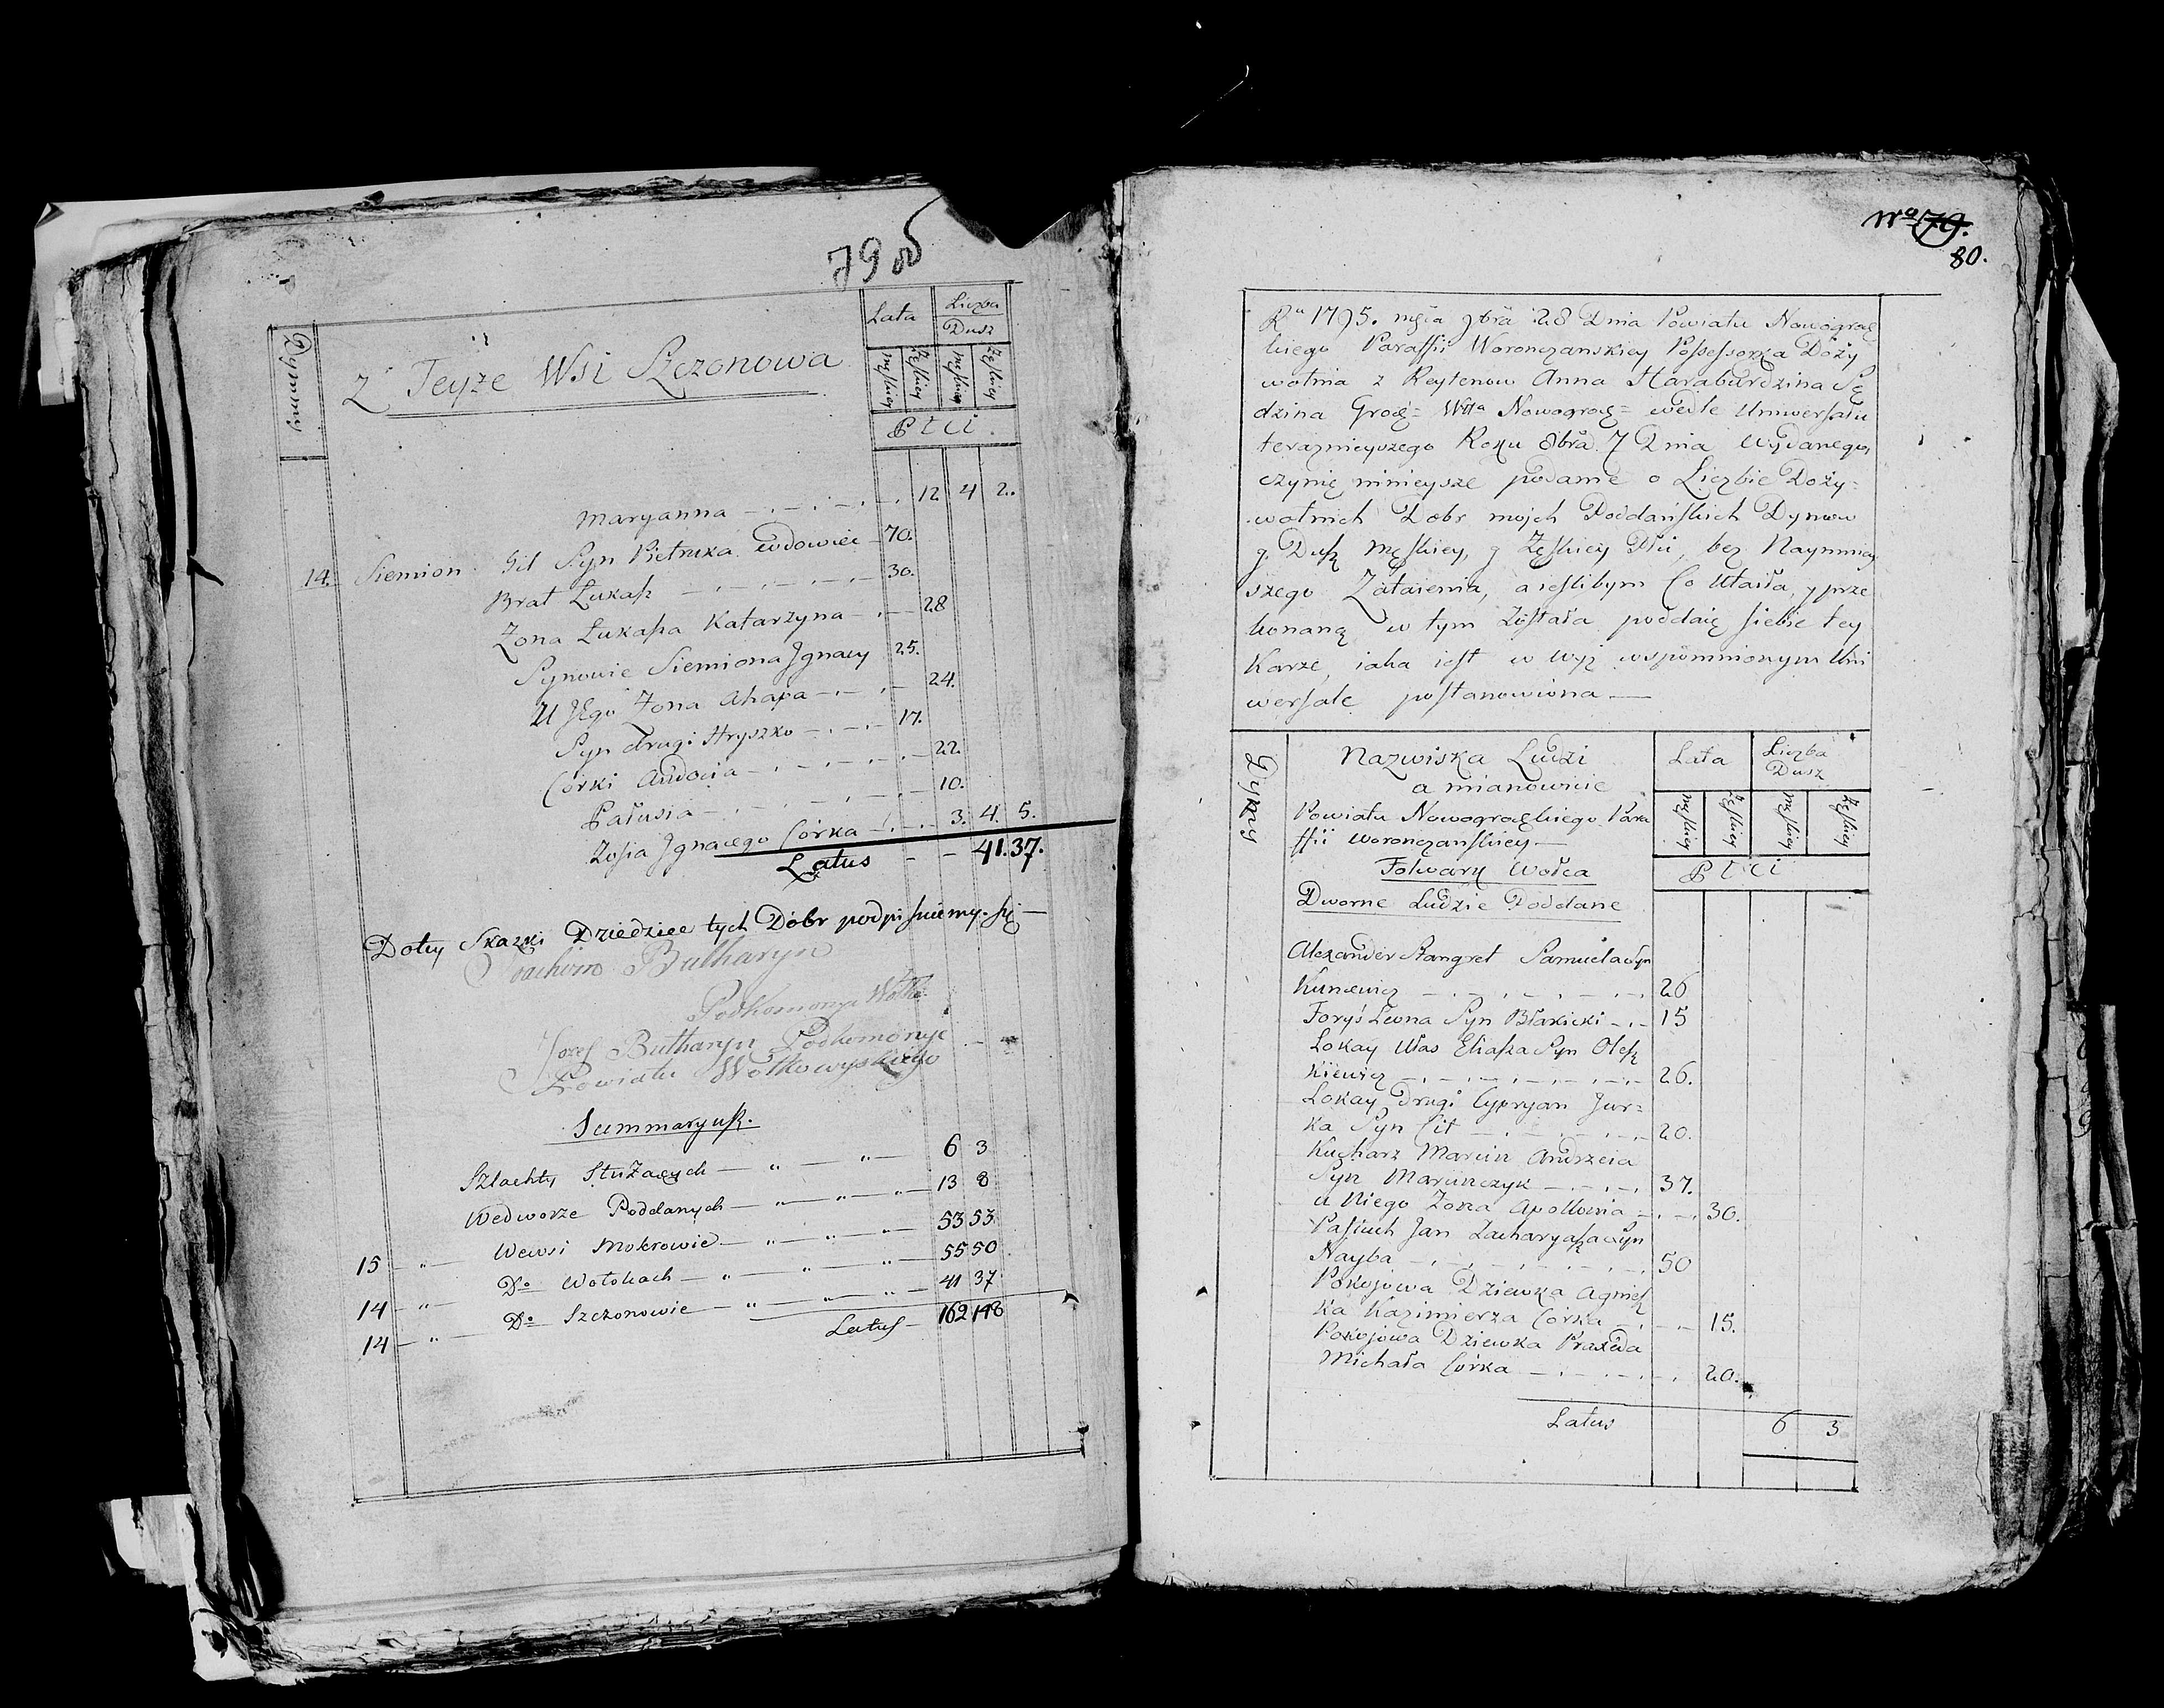 79 об
Dymmy
Z Teyże Wsi Szczonowa
Lata
Liczba
Dusz
męskiey
żęskiey
męskiey
żęskiey
Płci
Maryanna 12 4 2.
14. Siemion Gil Syn Pietruka wdowiec 70.
Brat Łukasz 30.
Zona Łukasza Katarzyna 28
Synowie Siemiona Jgnacy 25.
U Jego Zona Ahapa 24.
Syn drugi Hryszko 17.
Córki Audocia 22.
Pałusia 10.
Zosia Jgnacego Córka 3. 4. 5.
Latus 41. 37.
Do tey Skazki Dziedzice tych Dóbr podpisuiemy się
Joachim Bulharyn
Podkomorzyc Wołko:
Jozef Bulharyn Podkomorzyc
Powiatu Wołkowyskiego
Summaryusz.
Szlachty Służących 6 3
We dworze Poddanych 13 8
15 We wsi Mokrowie 53 53
14 Do Wołokach 55 50
14 Do Szczonowie 41 37
Latus 162 148
No 79.
80.
Ru 1795. mća 9bra 28 Dnia Powiatu Nowogrodz
kiego Paraffii Woronczanskiey Possessorka Doży
wotnia z Reytenow Anna Haraburdzina Sę
dzina Grodz= Wtta Nowogrodz= wedle Uniwersału
teraznieyszego Roku 8bra 7 Dnia wydanego,
czynię ninieysze podanie o Liczbie Doży=
wotnich Dobr mojch Poddańskich Dymow
9 Dusz męskiey, 9 żęskiey Płci, bez Naymniey
szego Zataienia, a iesłibym Co Utaiła, y prze
konaną w tym została poddaię siebie tey
Karze, iaka iest w wyż wspomnionym Uni
wersale postanowiona
Dymy
Nazwiska Ludzi
a mianowicie
Lata
Liczba
Dusz
Powiatu Nowogrodzkiego Para
ffii Woronczanskiey
męskiey
żęskiey
męskiey
żęskiey
Płci
Folwark Wołca
Dworne Ludzie Poddane
Alexander Stangret Samuela Syn
Kuncewicz 26
Foryś Leona Syn Błakicki 15
Lokay Ułas Eliasza Syn Olesz
kiewicz 26.
Lokay Drugi Cypryan Jur=
ka Syn Cit 20.
Kucharz Marcin Andrzeia
Syn Marcinczyk 37.
u Niego Zona Apollonia 30.
Pastuch Jan Zacharyasza Syn
Nayba 50
Pokojowa Dziewka Agniesz
ka Kazimierza Córka 15.
Pokojowa Dziewka Praxeda
Michała Córka 20.
Latus 6 3